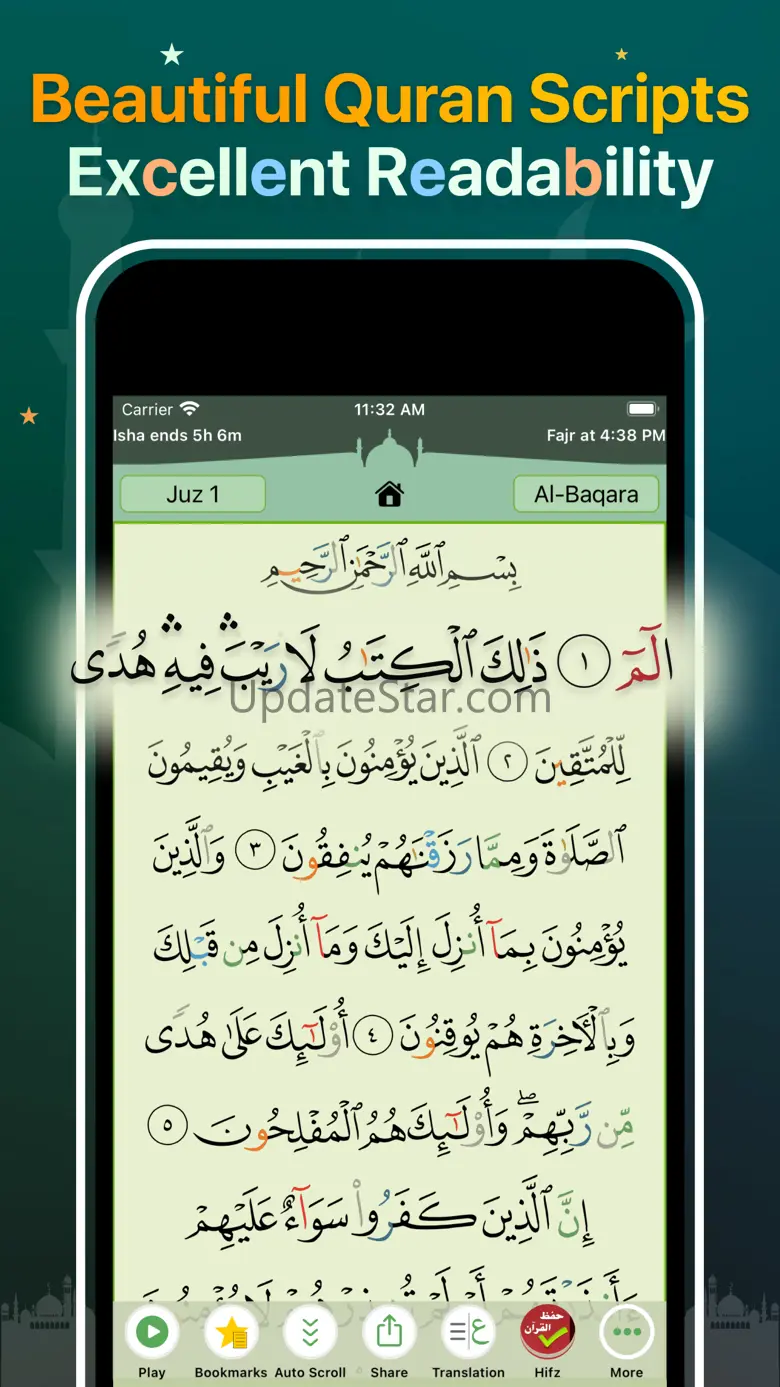 Beautiful Quran Scripts
Excellent Readability
Carrier 11:32 AM
Isha ends 5h 6m Fajr at 4:38 PM
Juz 1 Al-Baqara
بِسْمِ اللَّهِ الرَّحْمَٰنِ الرَّحِيمِ
الٓمٓ ١ ذَٰلِكَ ٱلْكِتَٰبُ لَا رَيْبَ ۛ فِيهِ ۛ هُدًى
UpdateStar.com
لِّلْمُتَّقِينَ ٢ ٱلَّذِينَ يُؤْمِنُونَ بِٱلْغَيْبِ وَيُقِيمُونَ
ٱلصَّلَوٰةَ وَمِمَّا رَزَقْنَٰهُمْ يُنفِقُونَ ٣ وَٱلَّذِينَ
يُؤْمِنُونَ بِمَآ أُنزِلَ إِلَيْكَ وَمَآ أُنزِلَ مِن قَبْلِكَ
وَبِٱلْأَخِرَةِ هُمْ يُوقِنُونَ ٤ أُوْلَٰٓئِكَ عَلَىٰ هُدًى
مِّن رَّبِّهِمْ ۖ وَأُوْلَٰٓئِكَ هُمُ ٱلْمُفْلِحُونَ ٥
إِنَّ ٱلَّذِينَ كَفَرُواْ سَوَآءٌ عَلَيْهِمْ
حفظ
القرآن
Play Bookmarks Auto Scroll Share Translation Hifz More